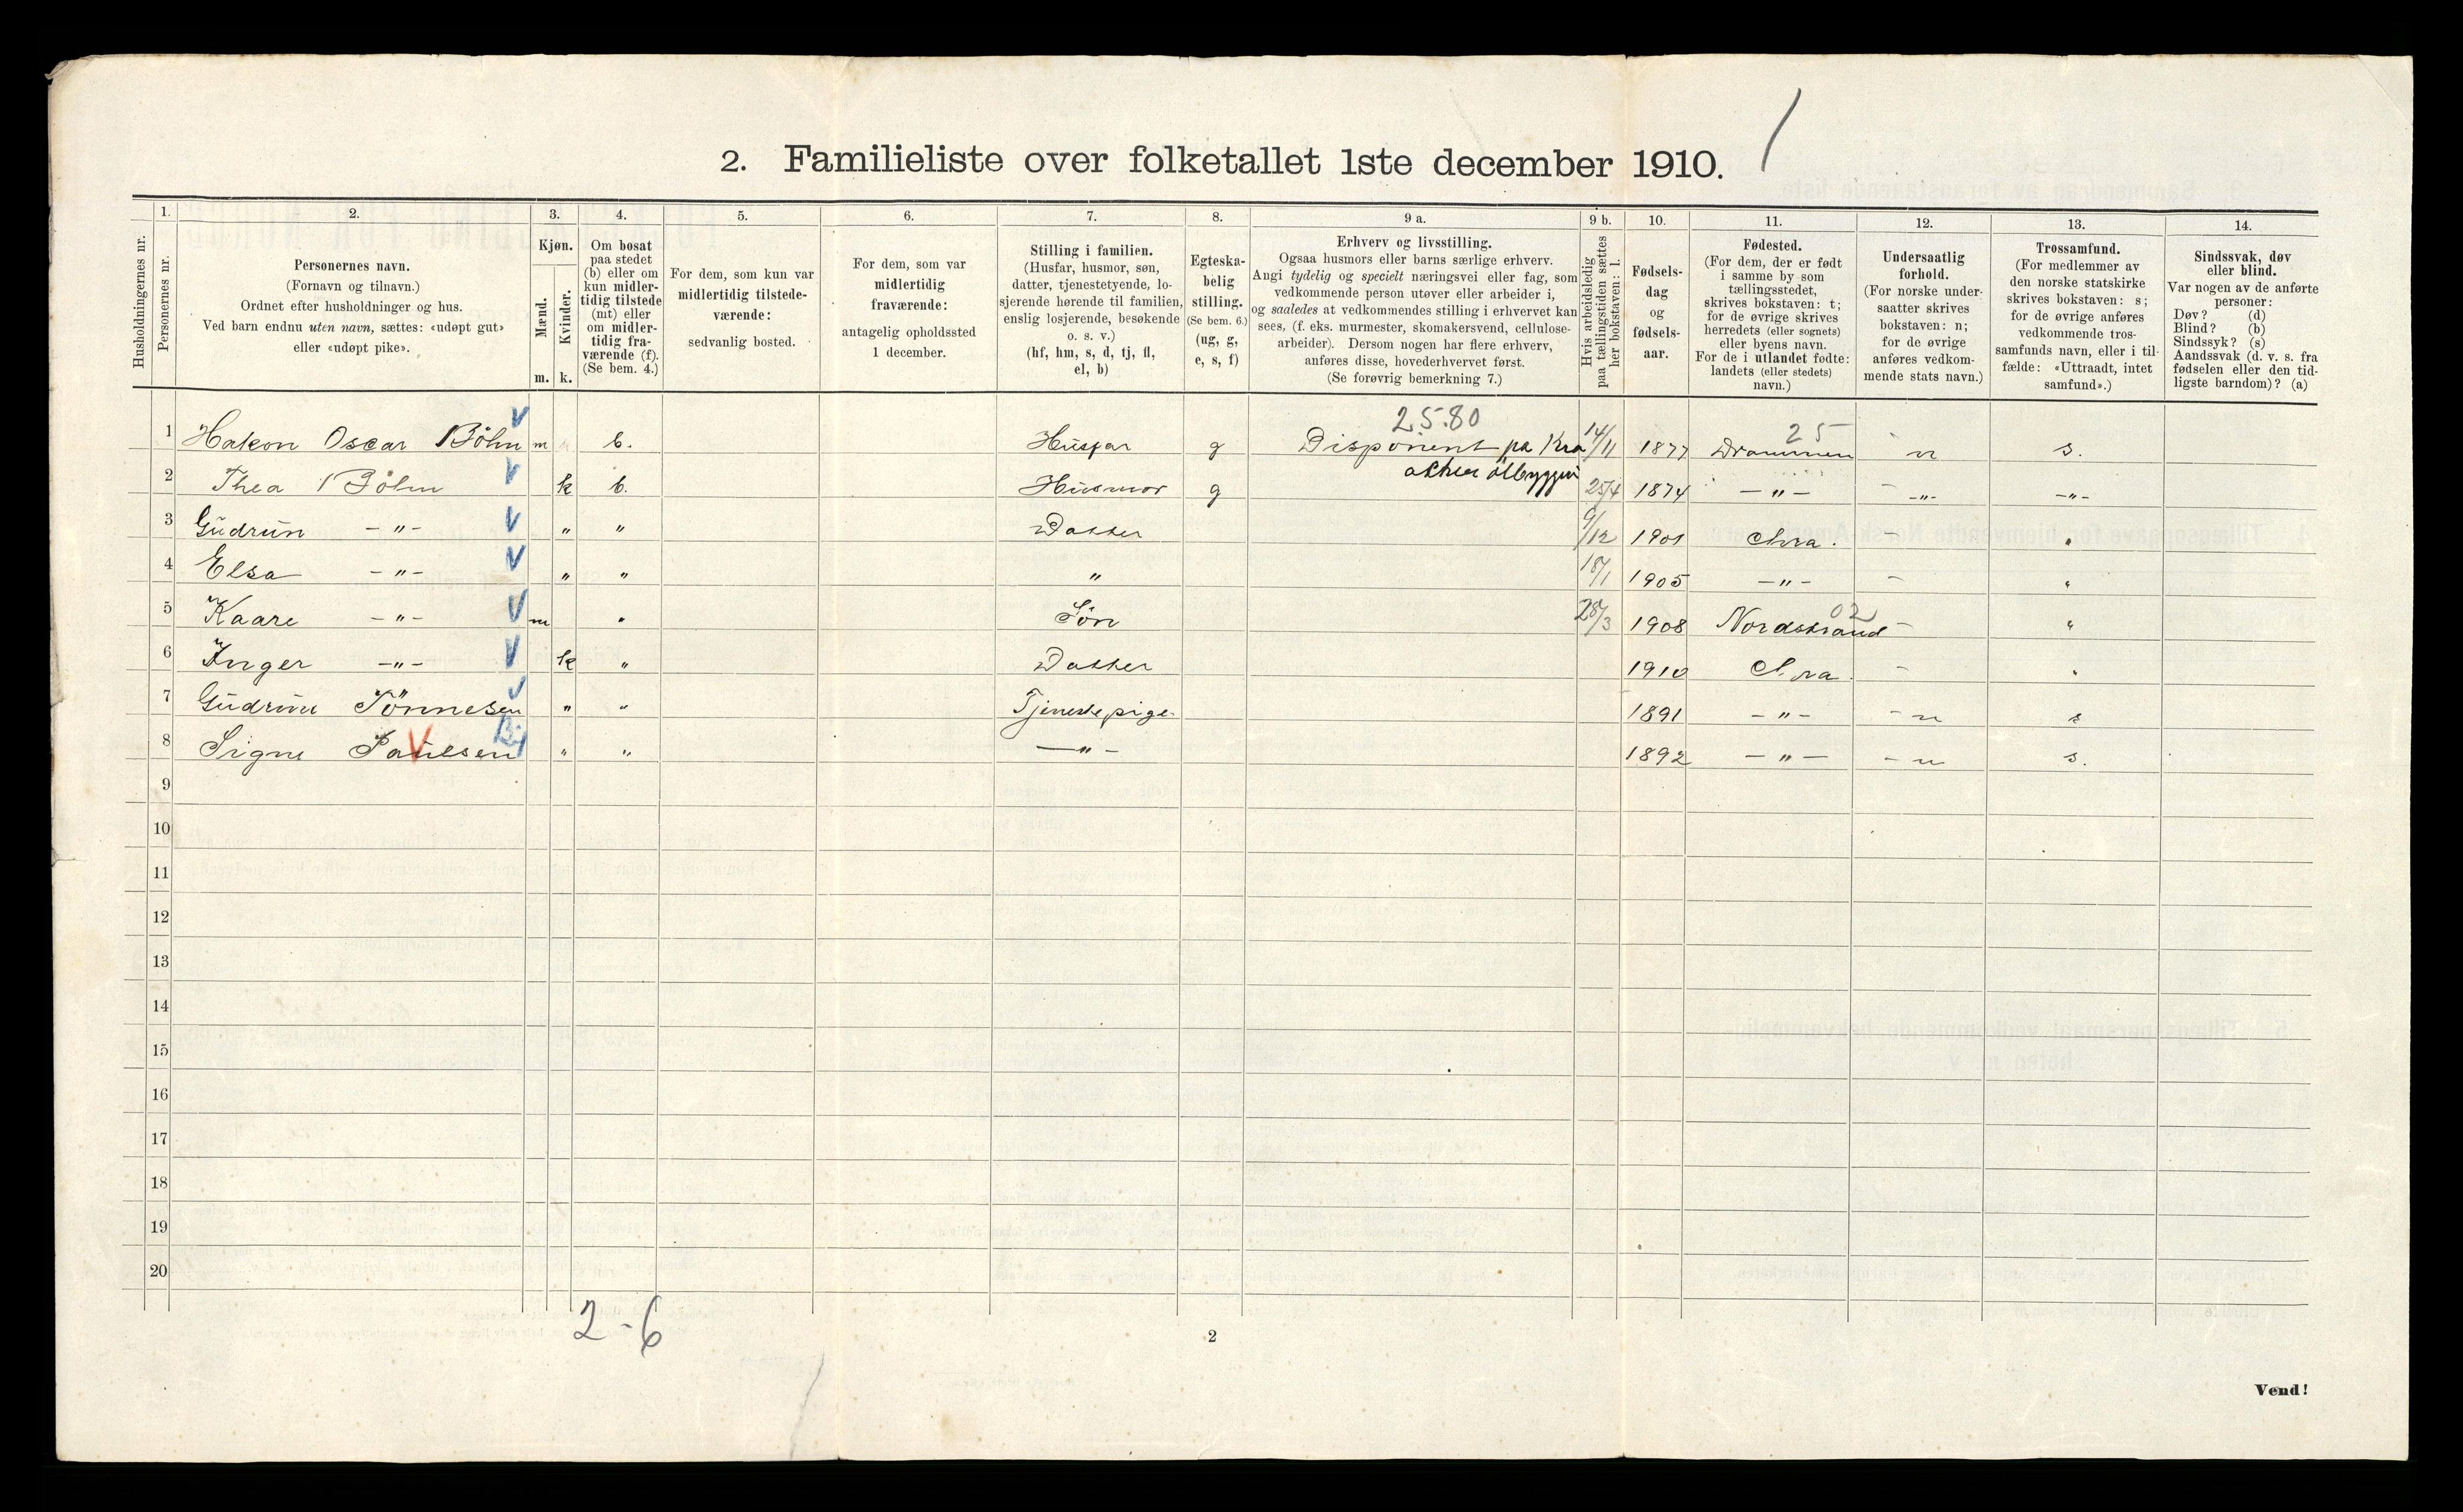 2. Familieliste over folketallet 1ste december 1910.
Husholdningernes nr.
1.
Personernes nr.
2.
Personernes navn.
(Fornavn og tilnavn.)
Ordnet efter husholdninger og hus.
Ved barn endnu uten navn, sættes: «udøpt gut»
eller «udøpt pike».
3.
Kjøn.
Mænd.
Kvinder.
m. k.
4.
Om bosat
paa stedet
(b) eller om
kun midler-
tidig tilstede
(mt) eller
om midler-
tidig fra-
værende (f).
(Se bem. 4.)
5.
For dem, som kun var
midlertidig tilstede-
værende:
sedvanlig bosted.
6.
For dem, som var
midlertidig
fraværende:
antagelig opholdssted
1 december.
7.
Stilling i familien.
(Husfar, husmor, søn,
datter, tjenestetyende, lo-
sjerende hørende til familien,
enslig losjerende, besøkende
o. s. v.)
(hf, hm, s, d, tj, fl,
el, b)
8.
Egteska-
belig
stilling.
(Se bem. 6.)
(ug, g,
e, s, f)
9 a.
Erhverv og livsstilling.
Ogsaa husmors eller barns særlige erhverv.
Angi tydelig og specielt næringsvei eller fag, som
vedkommende person utøver eller arbeider i,
og saaledes at vedkommendes stilling i erhvervet kan
sees, (f. eks. murmester, skomakersvend, cellulose-
arbeider). Dersom nogen har flere erhverv,
anføres disse, hovederhvervet først.
(Se forøvrig bemerkning 7.)
9 b.
Hvis arbeidsledig
paa tællingstiden sættes
her bokstaven: l.
10.
Fødsels-
dag
og
fødsels-
aar.
11.
Fødested.
(For dem, der er født
i samme by som
tællingsstedet,
skrives bokstaven: t;
for de øvrige skrives
herredets (eller sognets)
eller byens navn.
For de i utlandet fødte:
landets (eller stedets)
navn.)
12.
Undersaatlig
forhold.
(For norske under-
saatter skrives
bokstaven: n;
for de øvrige
anføres vedkom-
mende stats navn.)
13.
Trossamfund.
(For medlemmer av
den norske statskirke
skrives bokstaven: s;
for de øvrige anføres
vedkommende tros-
samfunds navn, eller i til-
fælde: «Uttraadt, intet
samfund».)
14.
Sindssvak, døv
eller blind.
Var nogen av de anførte
personer:
Døv? (d)
Blind? (b)
Sindssyk? (s)
Aandssvak (d. v. s. fra
fødselen eller den tid-
ligste barndom)? (a)
2.5.80 25
1 Hakon Oscar Böhn m b. Husfar g Disponent pa Kra 14/11 1877 Drammen n s.
2 Thea Böhn k b. Husmor g 25/4 1874 —"— -"- -"-
3 Gudrun -"- " " Datter 9/12 1901 Chra. "
4 Elsa -"- " " " 18/1 1905 -"- "
5 Kaare -"- m " Søn 28/3 1908 Nordstrand 02 "
6 Inger -"- k " Datter 1910 Chra. "
7 Gudrun Tönnesen " " Tjenestepige 1891 -"- n s
8 Signe Paulsen " " —"- 1892 —"— n s.
9
10
11
12
13
14
15
16
17
18
19
20
2-6
2
Vend!